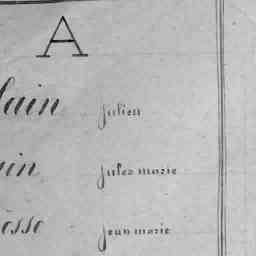 A
lain julien
in jules marie
osse jean marie